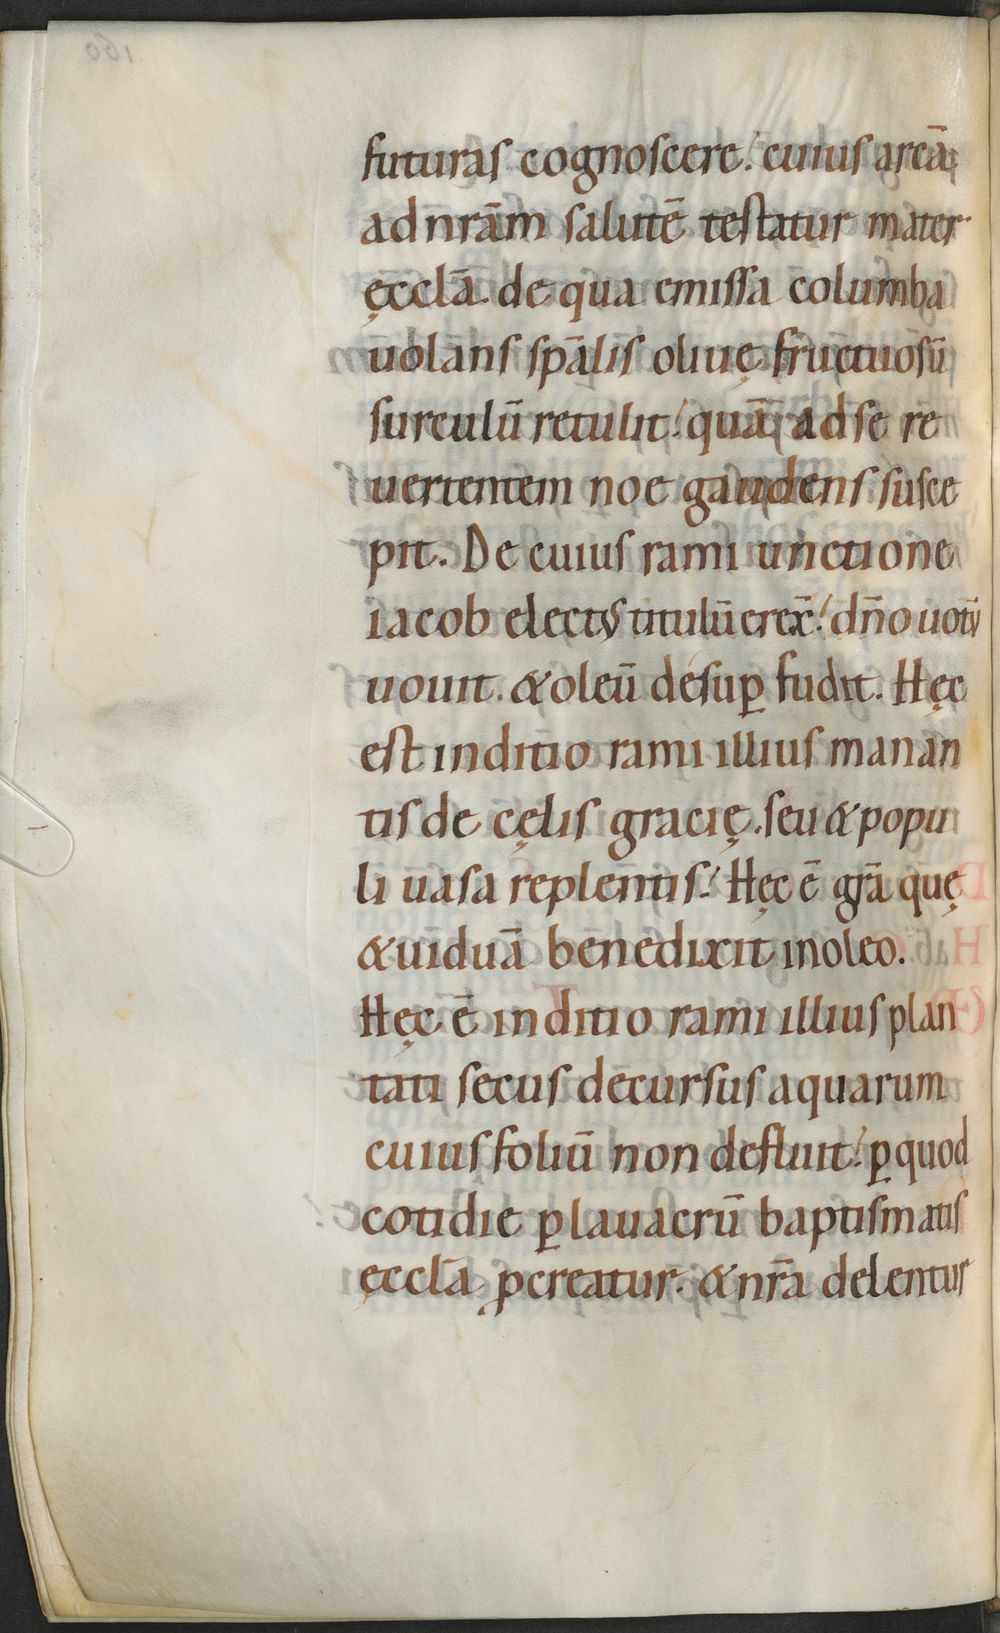 futuras cognoscere. cuius arcā
ad nrām salutē testatur mater
ęcclā de qua emissa columba
uolans spālis oliuę fructuosū
surculū retulit. quā ad se re
uertentem noe gaudens susce
pit. De cuius rami unctione
iacob electus titulū erex̄. dn̄o uotū
uouit. & oleū desuꝑ fudit. Hęc
est inditio rami illius manan
tis de cęlis gracię. seu & popu
li uasa replentis. Hęc ē grā quę
& uiduā benedixit in oleo.
Hęc ē inditio rami illius plan
tati secus decursus aquarum
cuius foliū non defluit. ꝑ quod
cotidie ꝑ lauacrū baptismatis
ęcclā ꝓcreatur. & nrā delentur
160